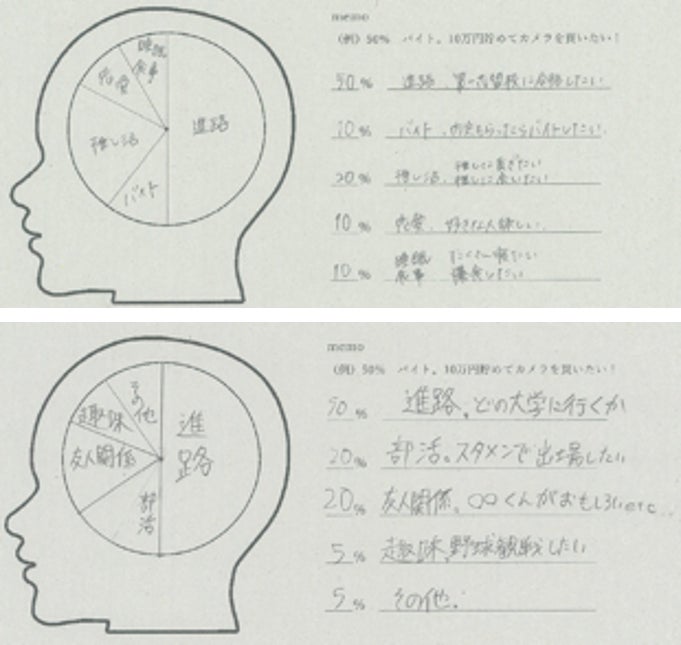 睡眠
食事
恋愛
進路
推し活
バイト
memo
（例）50%　バイト。10万円貯めてカメラを買いたい！
50%　進路、第一志望校に合格したい
10%　バイト、
20%　推し活、推しに貢ぎたい
推しに会いたい
10%　恋愛、好きな人欲しい。
10%　睡眠　たくさん寝たい
食事　爆食したい
その他
趣味
進路
友人関係
部活
memo
（例）50%　バイト。10万円貯めてカメラを買いたい！
50%　進路。どの大学に行くか
20%　部活。スタメンで出場したい
20%　友人関係。〇〇くんがおもしろいetc...
5%　趣味、野球観戦したい
5%　その他.